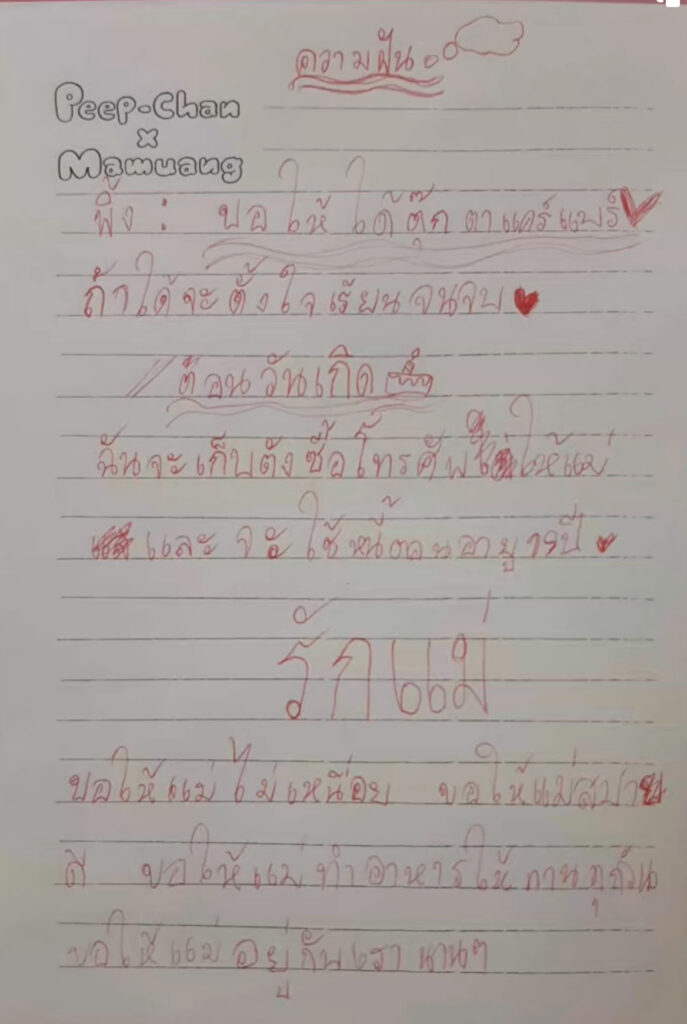 ความฝัน
Peep-Chan
x
Mamuang
พิ้ง : ขอให้ได้ตุ๊กตาแคร์แบร์
ถ้าได้จะตั้งใจเรียนจนจบ
ต้อนวันเกิด
ฉันจะเก็บตังซื้อโทรศัพให้แม่
และ จะใช้หนี้ตอนอายุ 19ปี
รักแม่
ขอให้แม่ไม่เหนื่อย ขอให้แม่สบาย
ดี ขอให้แม่ทำอาหารให้ทานทุกวัน
ขอให้แม่อยู่กับเรานานๆ